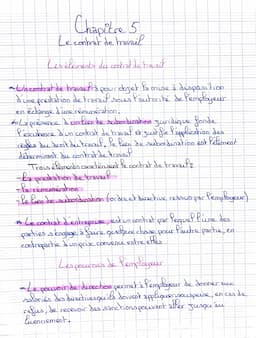 Chapitre 5
Le contrat de travail
Les éléments du contrat de travail
Le contrat de travail a pour objet la mise à disposition
d'une prestation de travail sous l'autorité de l'employeur
en échange d'une rémunération.
La présence d'un lien de subordination juridique fonde
l'existence d'un contrat de travail et justifie l'application des
règles du droit du travail. Le lien de subordination est l'élément
déterminant du contrat de travail
Trois éléments caractérisent le contrat de travail :
- La prestation de travail
- La rémunération
- Le lien de subordination (ordres et directives reçus par l'employeur)
Le contrat d'entreprise est un contrat par lequel l'une des
parties s'engage à faire quelque chose pour l'autre partie, en
contrepartie d'un prix convenu entre elles
Les pouvoirs de l'employeur
Le pouvoir de direction permet à l'employeur de donner aux
salariés des directives qu'ils doivent appliquer sous peine, en cas de
refus, de recevoir des sanctions pouvant aller jusqu'au
licenciement.